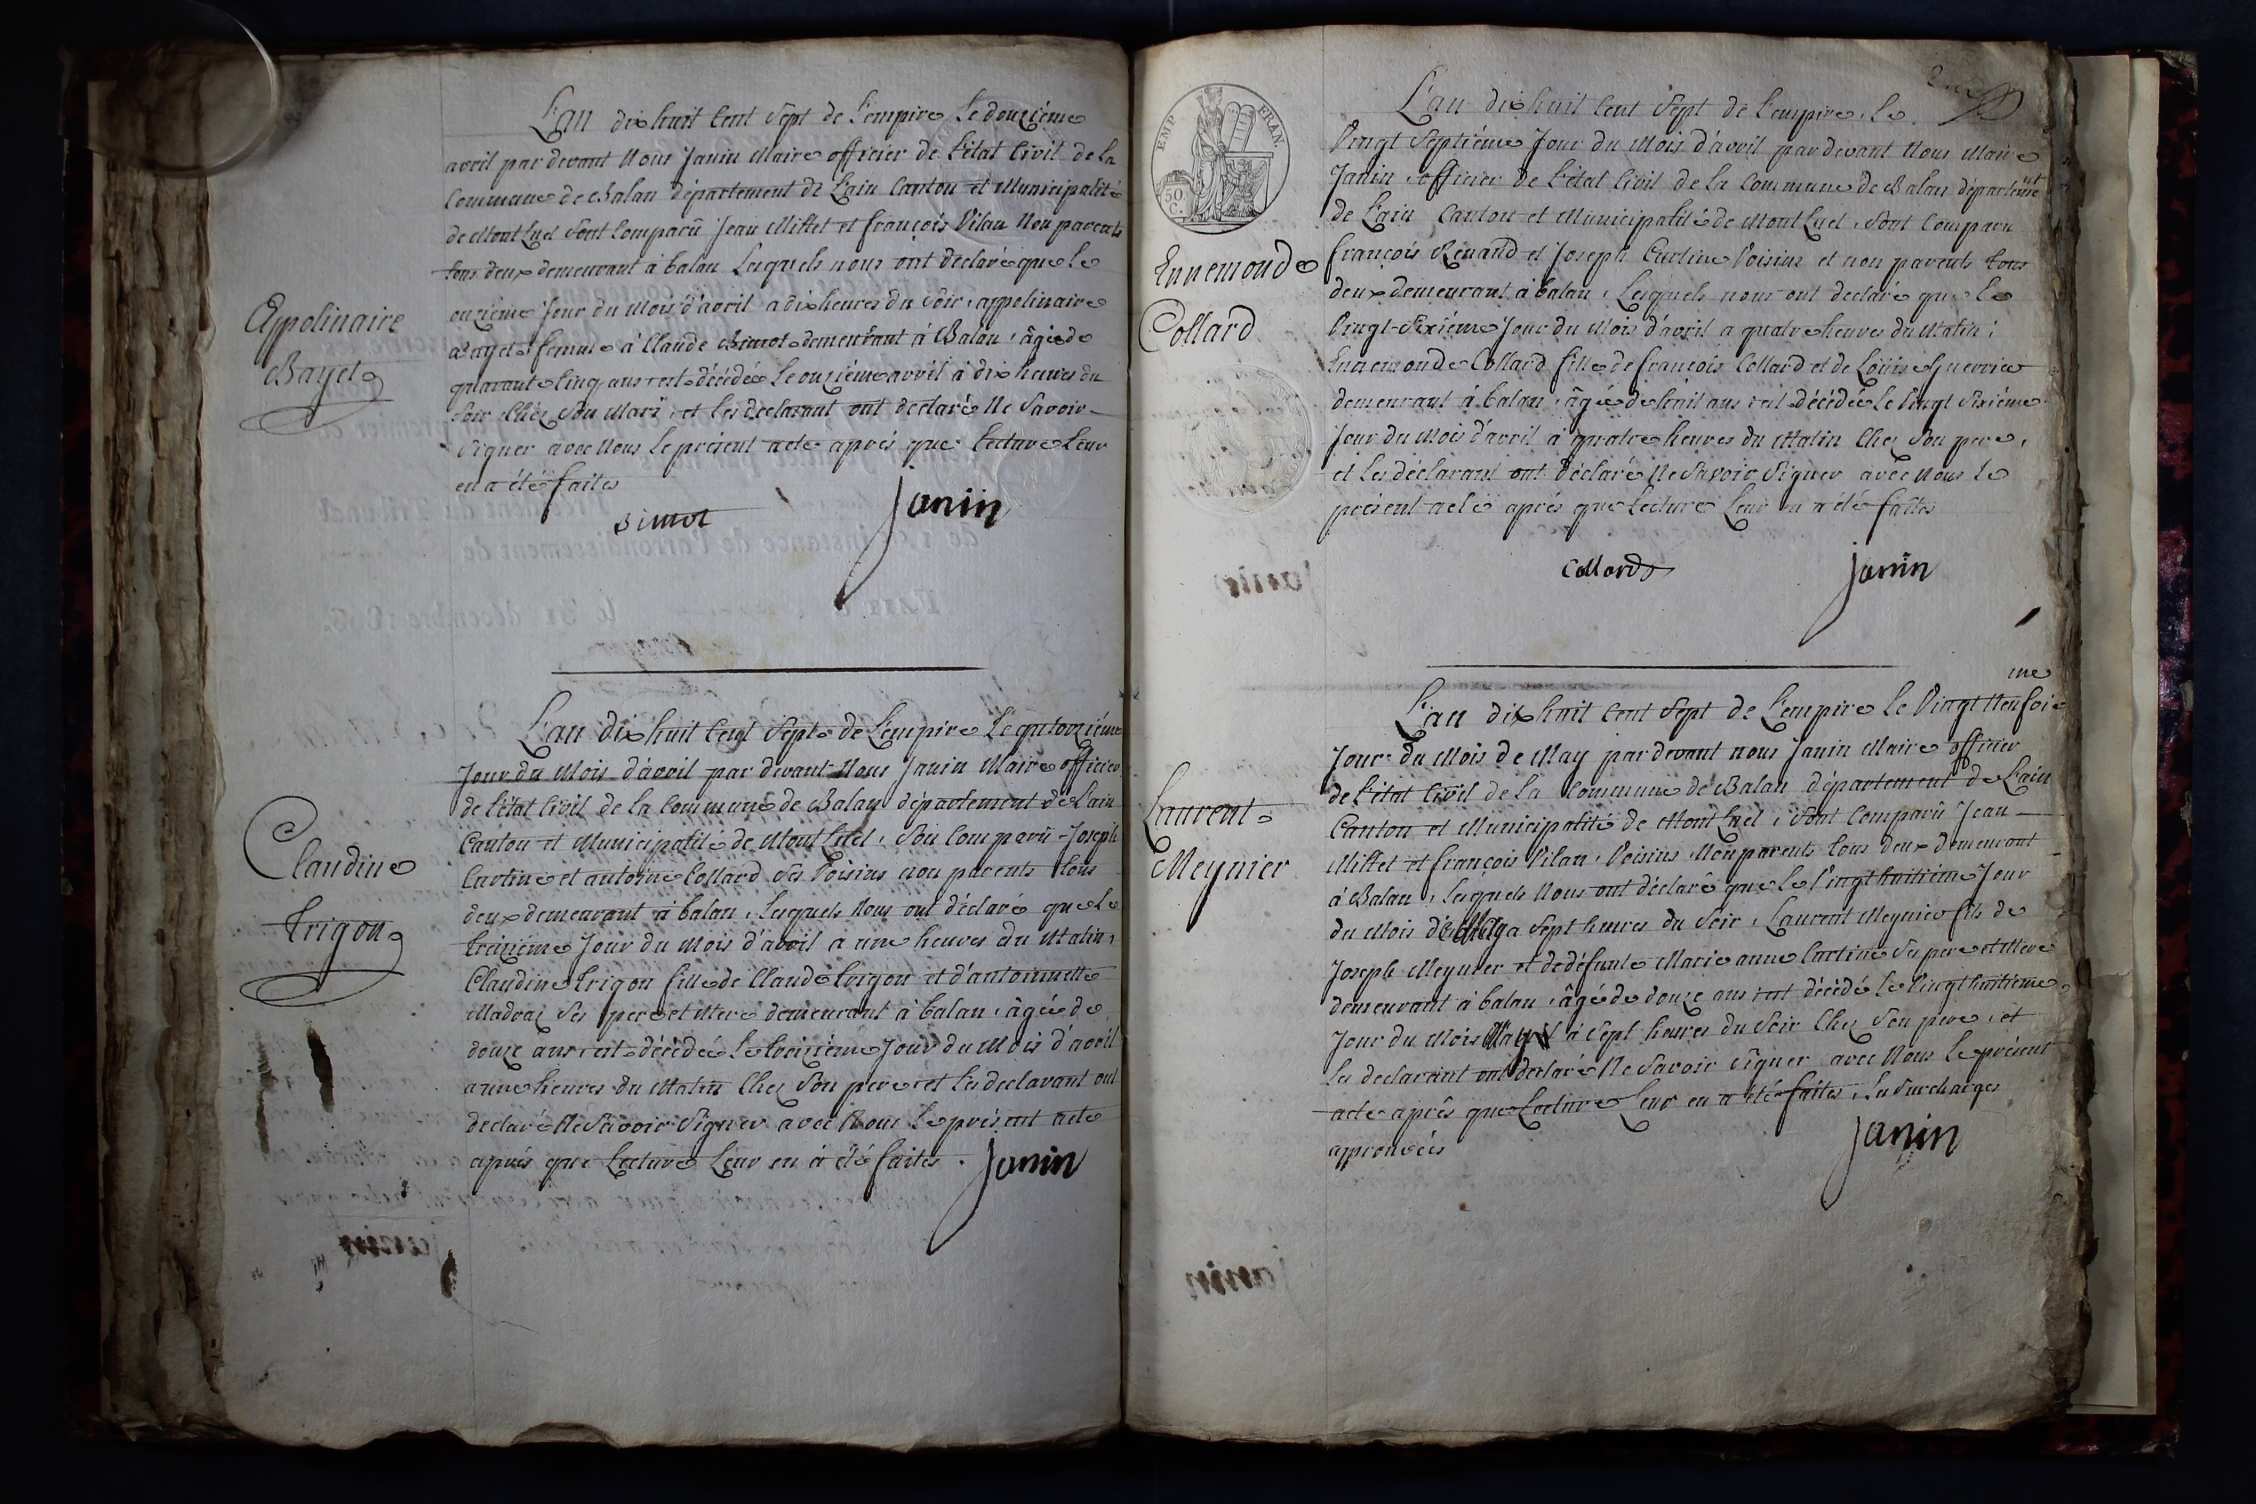 L'an dix huit Cent Sept de L'empire Le douzième
avril par devant Nous Janin Maire officier de L'état Civil de la
Commune de Balan département de Lain Canton et Municipalité
de MontLuel Sont Comparû Jean Millet et françois Vilan Non parents
tous deux demeurant à balan Lesquels nous ont declaré que Le
onzième Jour du Mois d'avril a dix heures du Soir, appolinaire
Bayet femme à Claude Simot demeurant à Balan, âgée de
quarante Cinq ans est décédée Le onzième avril à dix heures du
Soir Chéz Son Mari, et Les declarant ont declaré Ne Savoir
Signer avec Nous Le présent acte après que Lecture Leur
en a été faites
Simot
Janin
Appolinaire
Bayet
L'an dix huit Cent Sept de L'empire Le quatorzième
Jour du Mois d'avril par devant Nous Janin Maire officier
de L'état Civil de la Commune de Balan département de Lain
Canton et Municipalité de MontLuel, Son Comparû Joseph
Curtine et antoine Collard Ses Voisins non parents tous
deux demeurant à balan, Lesquels Nous ont déclaré que Le
treizième Jour du Mois d'avril a une heures du Matin,
Claudine Trigon fille de Claude Trigon et d'antoinnette
Madraz Ses pere et Mere demeurant à balan, âgée de
douze ans est décédée Le treizième Jour du Mois d'avril
a une heures du Matin Chez Son pere et Les declarant ont
declaré Ne Savoir Signer avec Nous Le présent acte
après que Lecture Leur en à été faites.
Janin
Claudine
Trigon
EMP. FRAN.
50 C.
L'an dix huit Cent Sept de L'empire, Le
Vingt Septième Jour du Mois d'avril par devant Nous Maire
Janin, officier de L'état Civil de la Commune de Balan département
de Lain Canton et Municipalité de MontLuel, Sont Comparu
françois Renand et Joseph Curtine Voisins et non parents tous
deux demeurant à balan, Lesquels nous ont declaré que Le
Vingt-Sixième Jour du Mois d'avril a quatre heures du Matin;
Ennemonde Collard fille de françois Collard et de Loüise Guerrier
demeurant à balan, âgée de huit ans est décédée Le Vingt Sixième
Jour du Mois d'avril à quatre heures du Matin Chez Son pere,
et Les déclarant ont déclaré Ne Savoir Signer avec Nous Le
présent acte après que Lecture Leur en a été faites
Collard
Janin
Ennemonde
Collard
L'an dix huit Cent Sept de L'empire Le Vingt Neufvie me
Jour du Mois de May par devant nous Janin Maire officier
de L'état Civil de La Commune de Balan département de Lain
Canton et Municipalité de MontLuel, Sont Comparû Jean
Millet et françois Vilan, Voisins Non parents tous deux demeurant
à Balan, Lesquels Nous ont déclaré que Le Vingt huitième Jour
du Mois de May a Sept heures du Soir, Laurent Meynier fils de
Joseph Meynier et de défunte Marie anne Curtine Ses pere et Mere
demeurant à balan, âgé de douze ans est décédé Le Vingt huitième
Jour du Mois May à Sept heures du Soir Chez Son pere, et
Les declarant ont declaré Ne Savoir Signer avec Nous Le présent
acte après que Lecture Leur en a été faites, Les Surcharges
approuvées
Janin
Laurent
Meynier